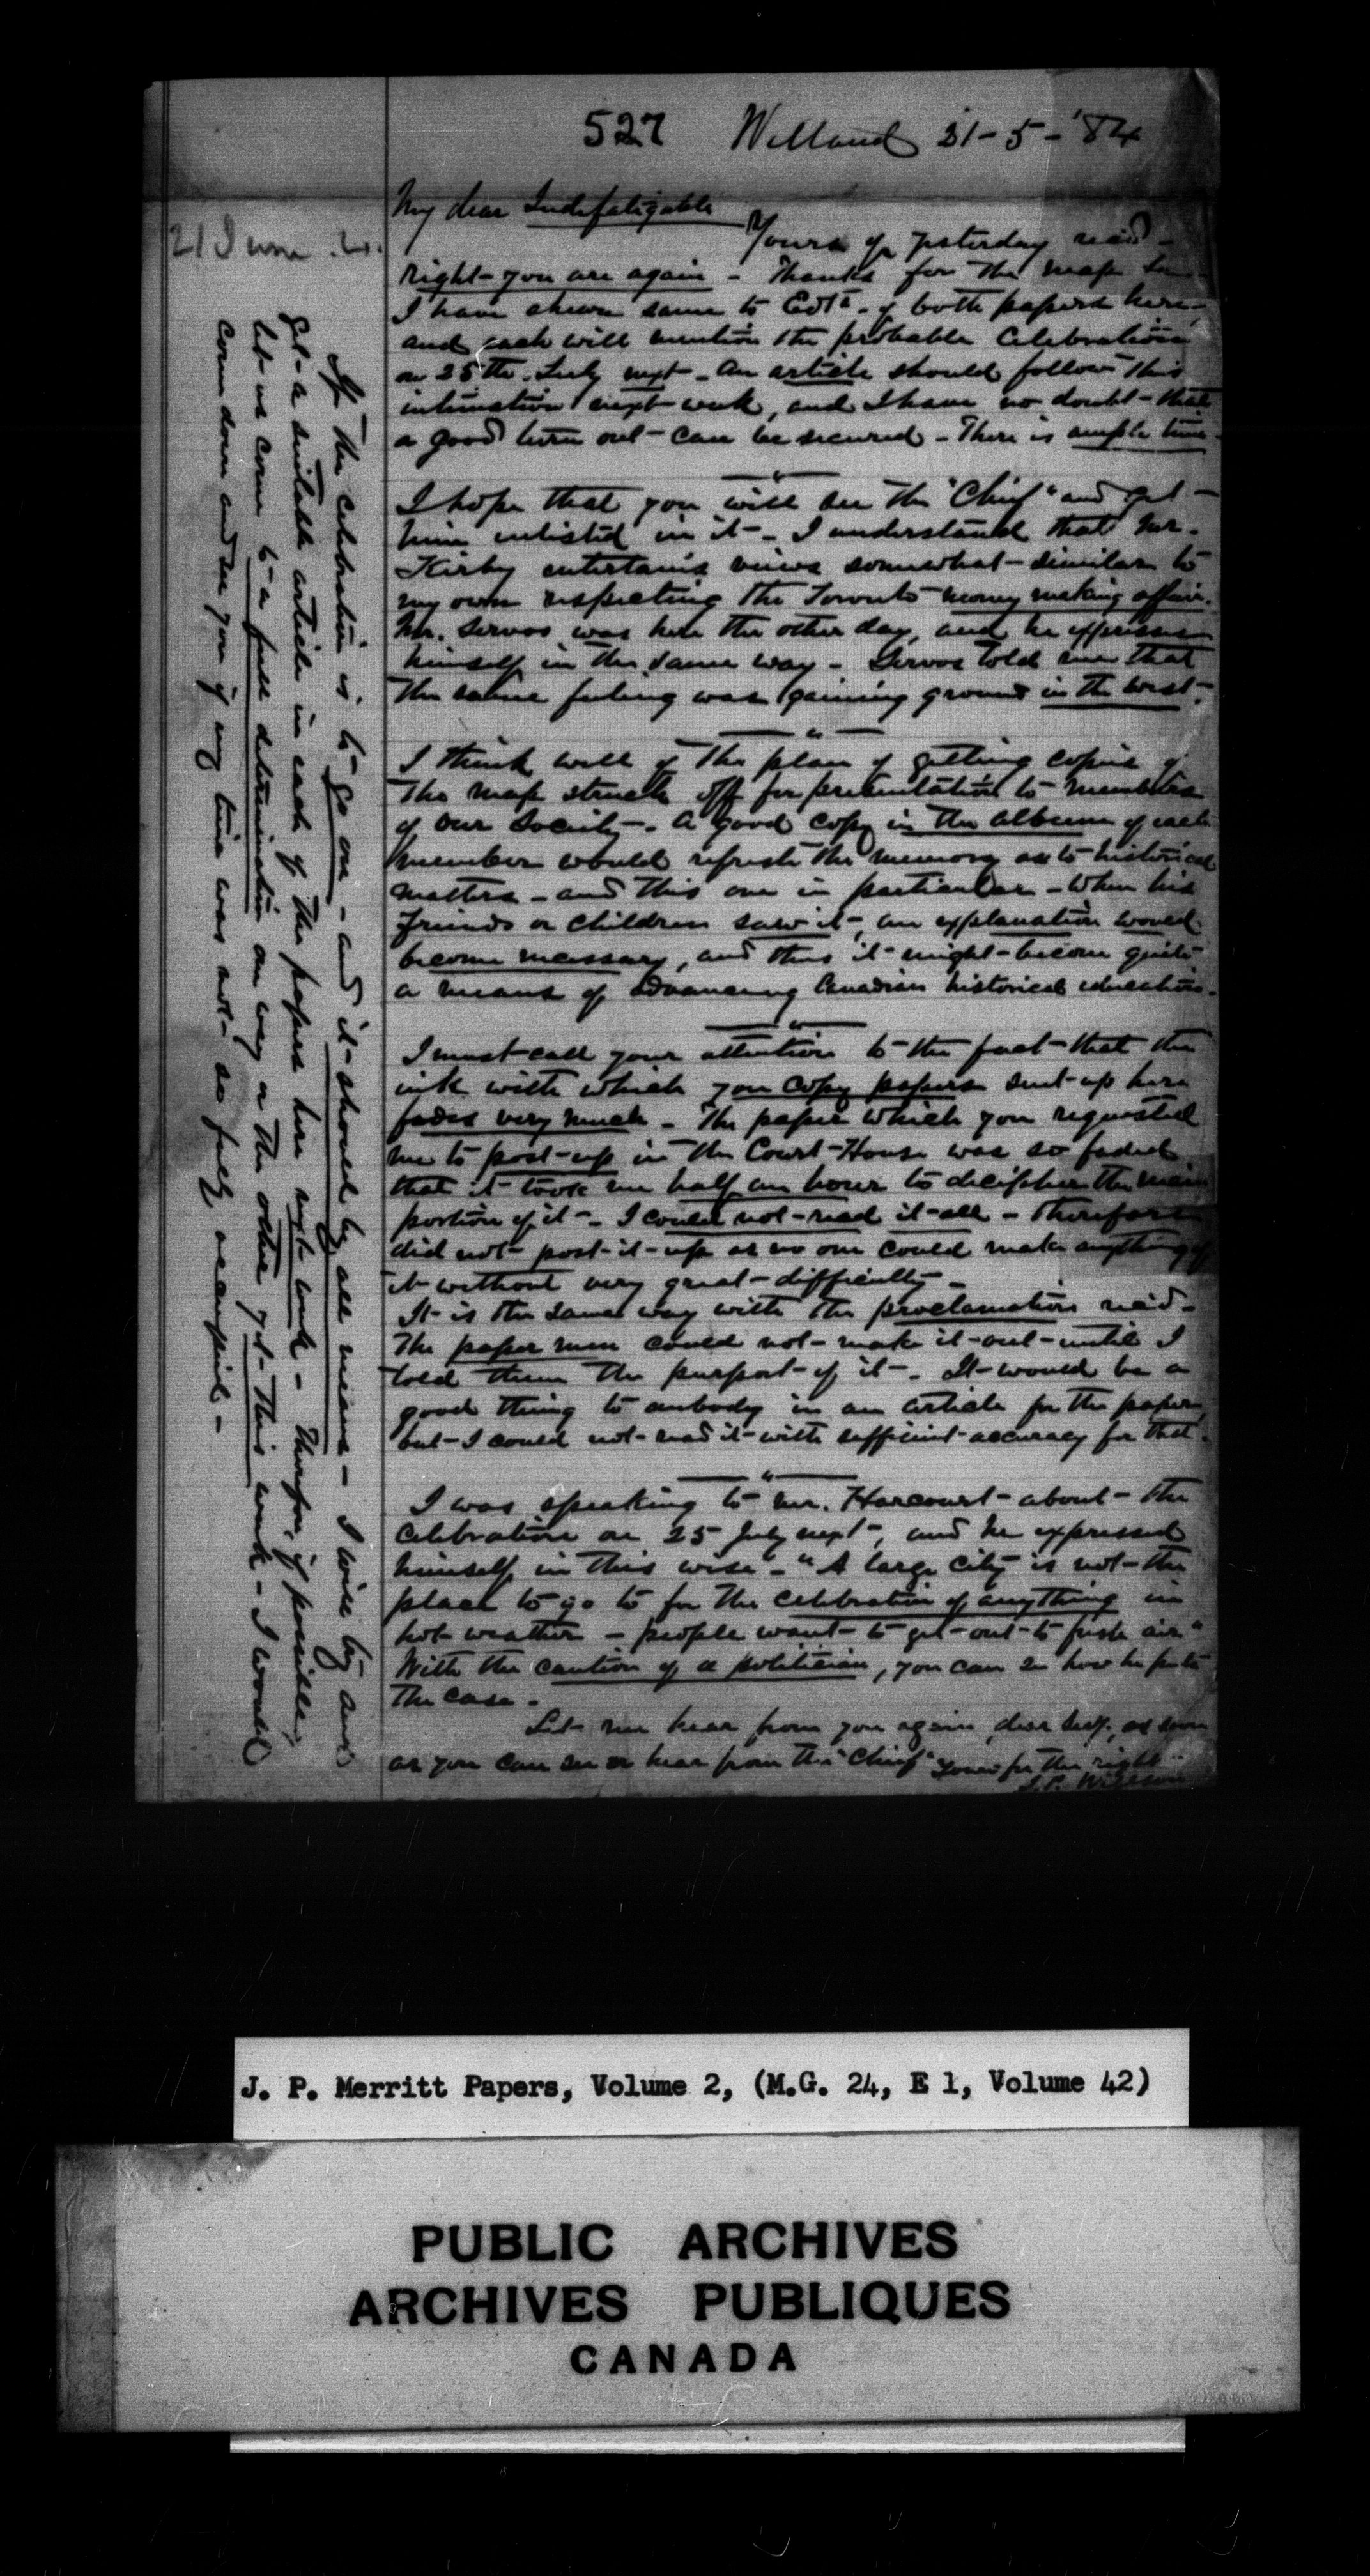 527 Welland 31-5-'84
My dear Indefatigable
Yours of yesterday rec'd -
right you are again - Thanks for the map
I have shewn same to Edts. of both papers here,
and each will mention the probable celebration
on 25th July next - An article should follow this
intimation next week, and I have no doubt that
a good turn out can be secured - There is ample time -
I hope that you will see the "Chief" and get
him enlisted in it - I understand that Mr.
Kirby entertains views somewhat similar to
my own respecting the Toronto money making affair.
Mr. Servos was here the other day, and he expresses
himself in the same way - Servos told me that
the same feeling was gaining ground in the west -
I think well of the plan of getting copies of
the map struck off for presentation to members
of our Society -. A good copy in the album of each
member would refresh the memory as to historical
matters - and this one in particular - When his
friends or children saw it, an explanation would
become necessary, and thus it might become quite
a means of advancing Canadian historical education.
I must call your attention to the fact that the
ink with which you copy papers sent up here
fades very much - The paper which you requested
me to post up in the Court House was so faded
that it took me half an hour to decipher the main
portion of it - I could not read it all - Therefore
did not post it up as no one could make anything of
it without very great difficulty -
It is the same way with the proclamation rec'd -
The paper men could not make it out until I
told them the purport of it -. It would be a
good thing to embody in an article for the paper,
but I could not read it with sufficient accuracy for that.
I was speaking to Mr. Harcourt about the
celebration on 25 July next, and he expressed
himself in this wise - "A large city is not the
place to go to for the celebration of anything in
hot weather - people want to get out to fresh air"
With the caution of a politician, you can see how he puts
the case -
Let me hear from you again, dear as soon
as you can see or hear from the "Chief" Yours for the right
Willson
21 June
If the celebration is to go on - and it should by all means - I will try and
get a suitable article in each of the papers here next week - Therefore, if possible,
let us come to a full determination one way or the other yet this week - I would
come down and see you if my time was not so fully occupied -
J. P. Merritt Papers, Volume 2, (M.G. 24, E 1, Volume 42)
PUBLIC ARCHIVES
ARCHIVES PUBLIQUES
CANADA